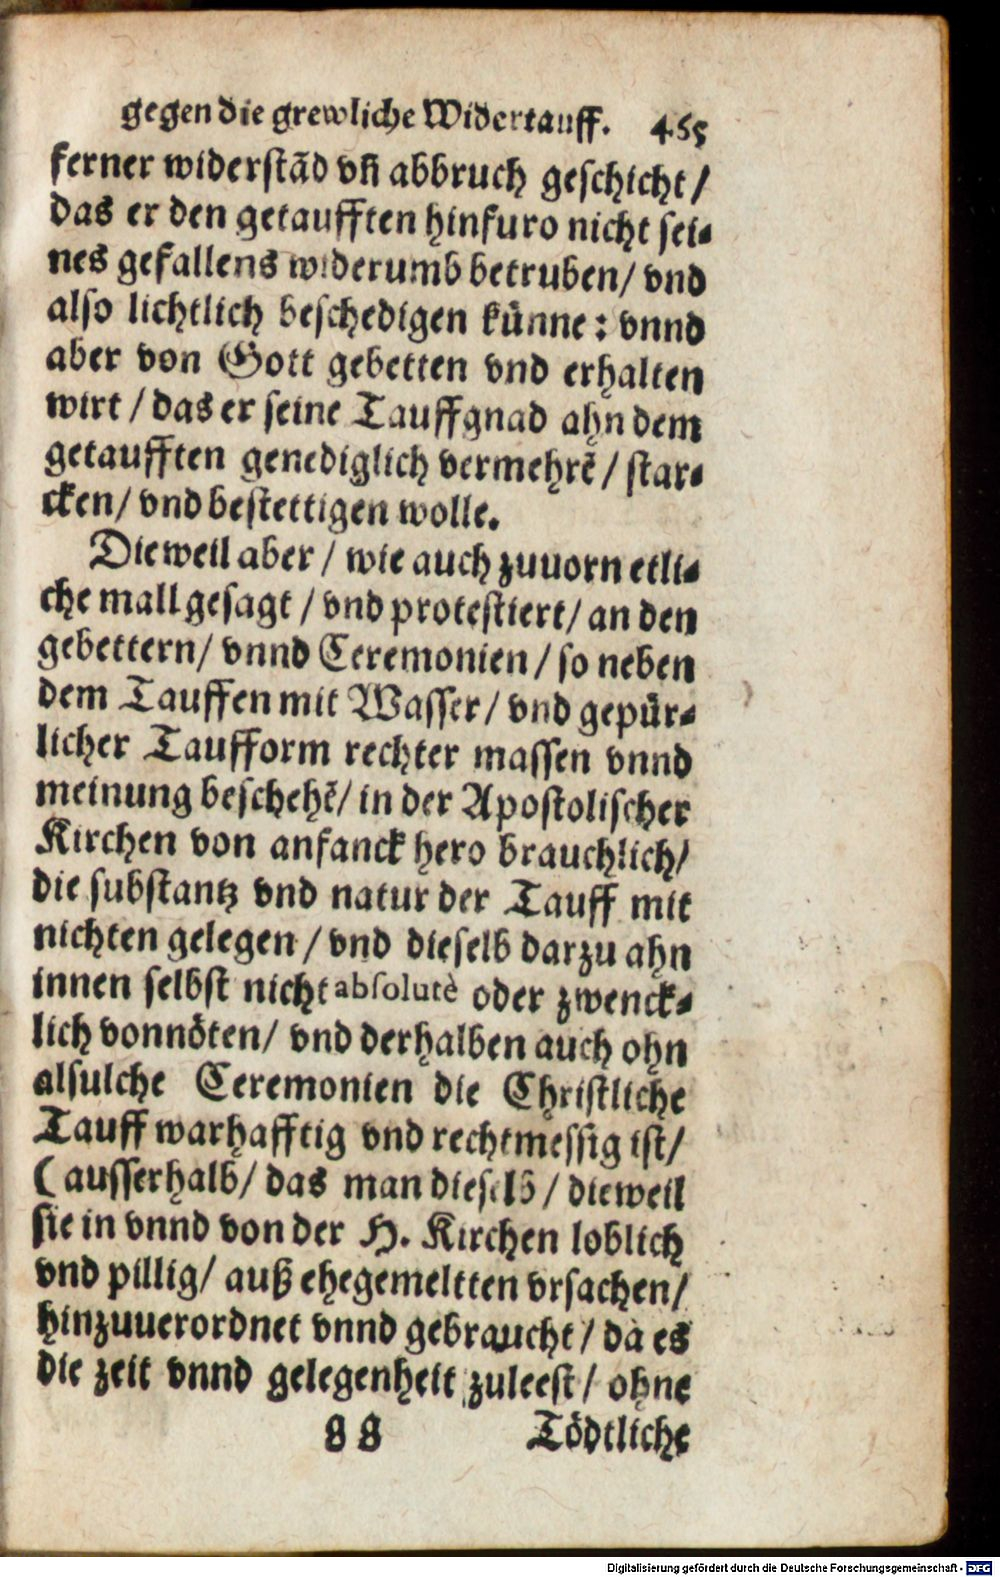 gegen die grewliche Widertauff. 465
ferner widerstād vñ abbruch geschicht /
das er den getaufften hinfuro nicht sei⸗
nes gefallens widerumb betruben / vnd
also lichtlich beschedigen künne : vnnd
aber von Gott gebetten vnd erhalten
wirt / das er seine Tauffgnad ahn dem
getaufften genediglich vermehrē / star⸗
cken / vnd bestettigen wolle.
Dieweil aber / wie auch zuuorn etli⸗
che mall gesagt / vnd protestiert / an den
gebettern / vnnd Ceremonien / so neben
dem Tauffen mit Wasser / vnd gepür⸗
licher Taufform rechter massen vnnd
meinung beschehē / in der Apostolischer
Kirchen von anfanck hero brauchlich /
die substantz vnd natur der Tauff mit
nichten gelegen / vnd dieselb darzu ahn
innen selbst nicht absolutè oder zwenck⸗
lich vonnöten / vnd derhalben auch ohn
alsulche Ceremonien die Christliche
Tauff warhafftig vnd rechtmessig ist /
( ausserhalb / das man dieselb / dieweil
sie in vnnd von der H. Kirchen loblich
vnd pillig / auß ehegemeltten vrsachen /
hinzuuerordnet vnnd gebraucht / da es
die zeit vnnd gelegenheit zuleest / ohne
88 Tödtliche
Digitalisierung gefördert durch die Deutsche Forschungsgemeinschaft - DFG